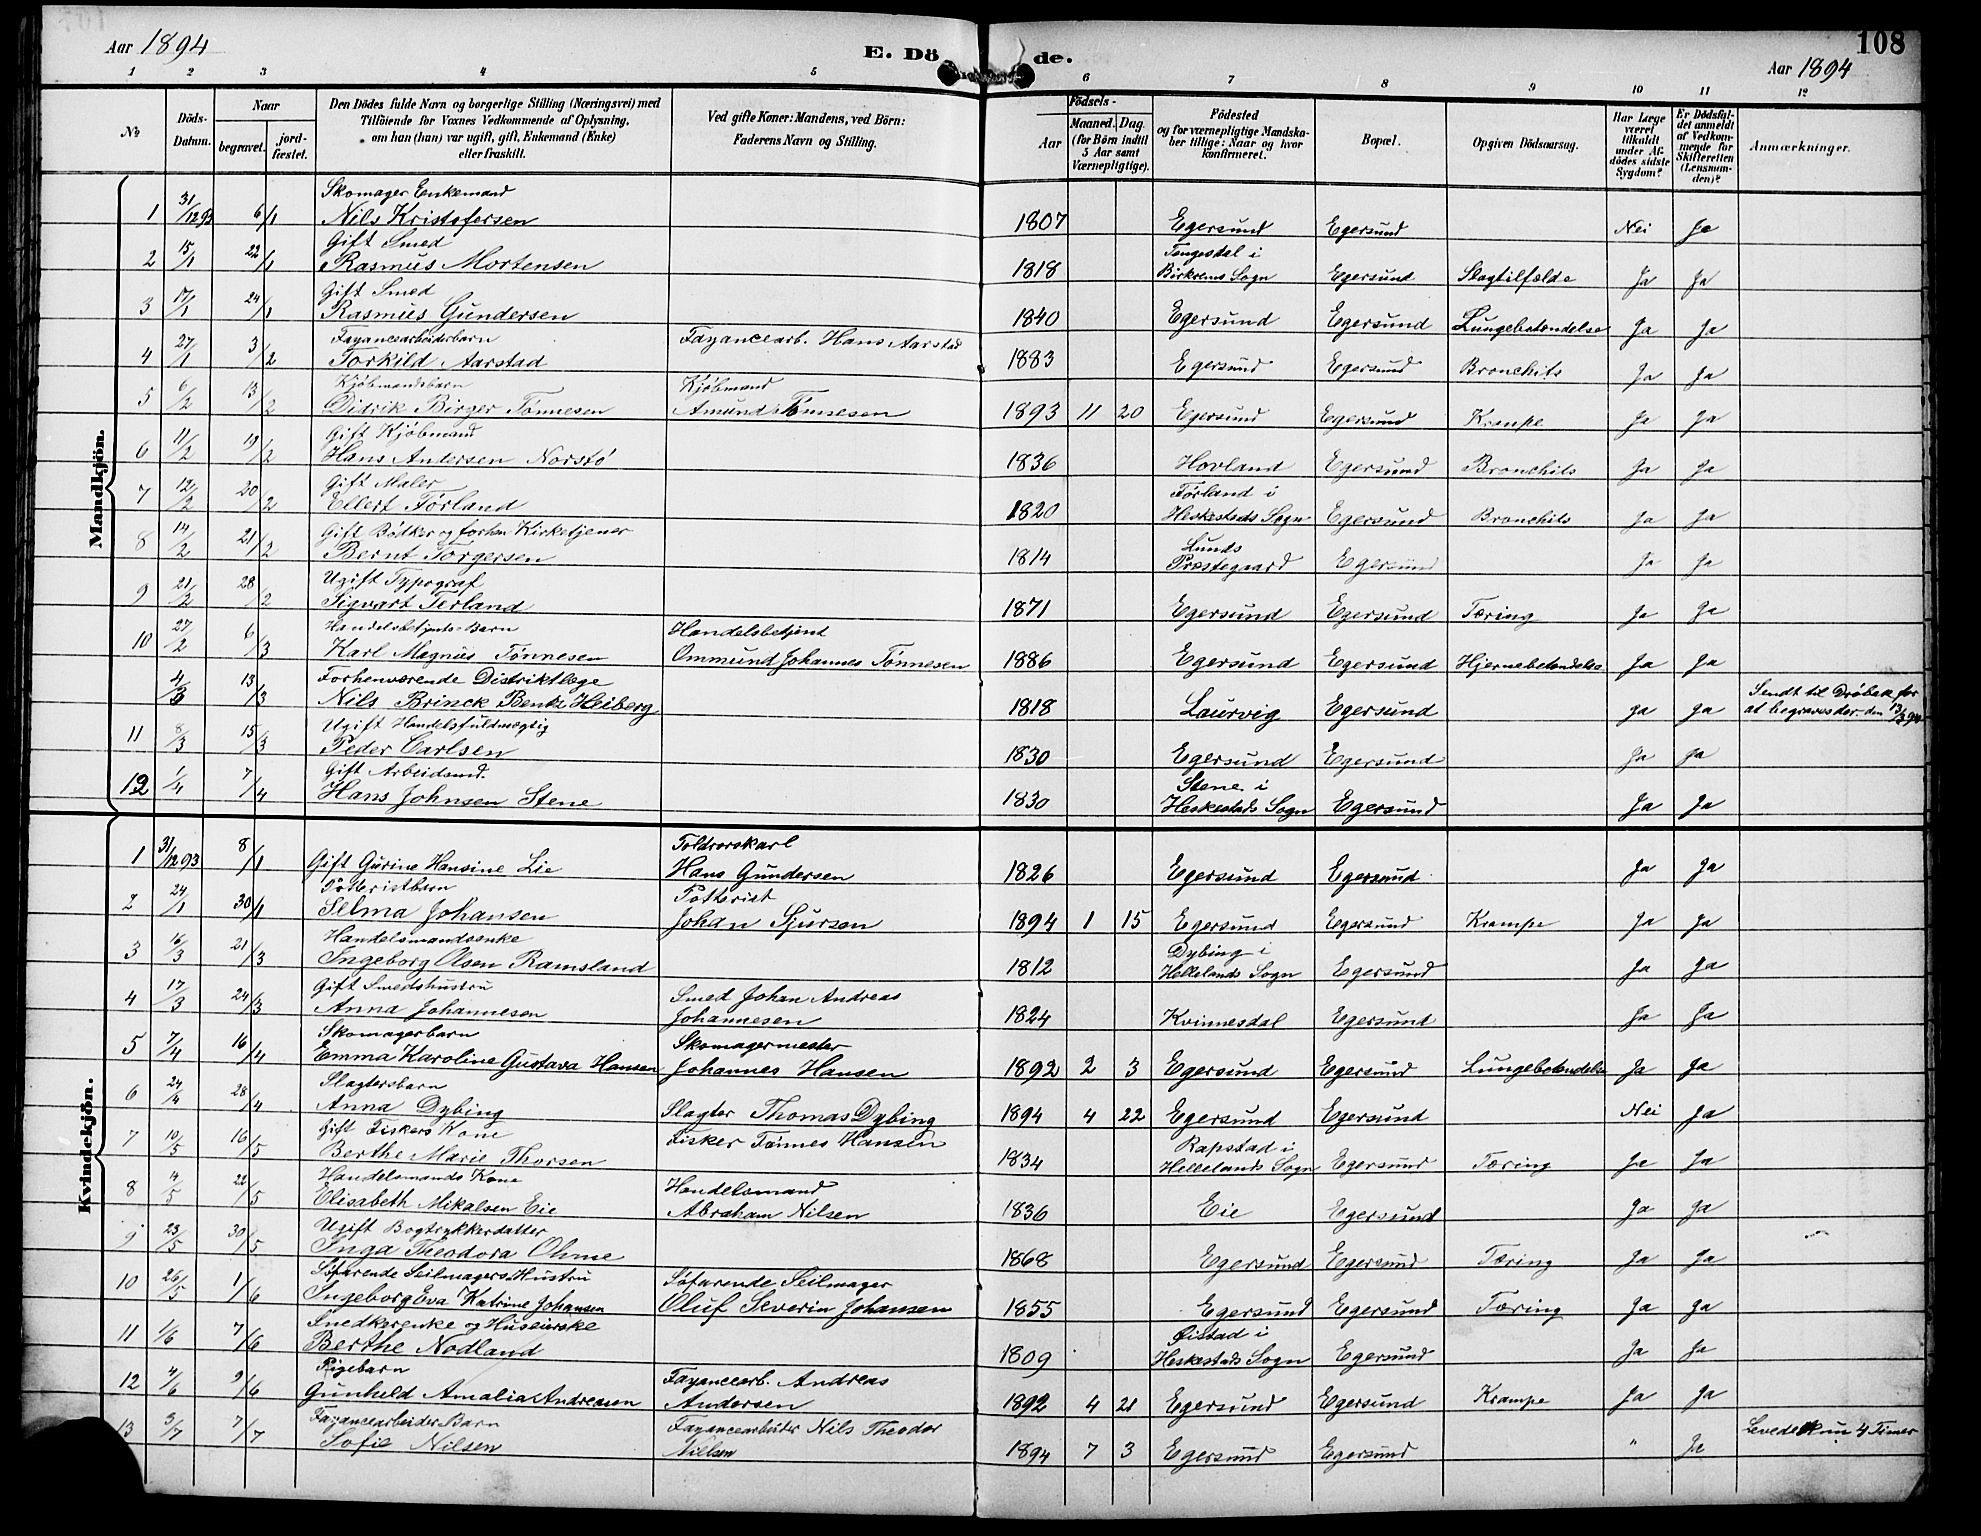 Aar 1894
E. Dö de.
108
Aar 1894
1 2 3 4 5 6 7 8 9 10 11 12
No
Döds-Datum.
Naar
begravet.
jord-fæstet.
Den Dödes fulde Navn og borgerlige Stilling (Næringsvei) med
Tilföiende for Voxnes Vedkommende af Oplysning,
om han (hun) var ugift, gift, Enkemand (Enke)
eller fraskilt.
Ved gifte Koner: Mandens, ved Börn:
Faderens Navn og Stilling.
Födsels-
Aar
Maaned. Dag.
(for Börn indtil
5 Aar samt
Værnepligtige).
Födested
og for værnepligtige Mandska-
ber tillige: Naar og hvor
konfirmeret.
Bopæl.
Opgiven Dödsaarsag.
Har Læge
været
tilkaldt
under Af-
dödes sidste
Sygdom?
Er Dödsfal-
det anmeldt
af Vedkom-
mende for
Skifteretten
(Lensman-
den)?
Anmærkninger.
Mandkjön.
Skomager Enkemand
1 31/12 93 6/1 Nils Kristofersen 1807 Egersund Egersund Nei Ja
Gift Smed Tengesdal i
2 15/1 22/1 Rasmus Mortensen 1818 Birkrems Sogn Egersund Slagtilfælde Ja Ja
Gift Smed
3 17/1 24/1 Rasmus Gundersen 1840 Egersund Egersund Lungebetændelse Ja Ja
Fayancearbeiderbarn Fayancearb. Hans Aarstad
4 27/1 3/2 Torkild Aarstad 1883 Egersund Egersund Bronchits Ja Ja
Kjøbmandsbarn Kjøbmand
5 6/2 13/2 Didrik Birger Tønnesen Amund Tønnesen 1893 11 20 Egersund Egersund Krampe Ja Ja
Gift Kjøbmand
6 11/2 19/2 Hans Andersen Norstø 1836 Hovland Egersund Bronchits Ja Ja
Gift Maler Førland i
7 12/2 20/2 Ellert Førland 1820 Heskestads Sogn Egersund Bronchits Ja Ja
Gift Bødker og forhen Kirketjener Lunds
8 14/2 21/2 Bernt Torgersen 1814 Præstegaard Egersund Ja Ja
Ugift Typograf
9 21/2 28/2 Sigvart Terland 1871 Egersund Egersund Tæring Ja Ja
Handelsbetjents Barn Handelsbetjent
10 27/2 6/3 Karl Magnus Tønnesen Ommund Johannes Tønnesen 1886 Egersund Egersund Hjernebetændelse Ja Ja
Forhenværende Distriktlæge Sendt til Drøbak for
4/3 13/3 Nils Brinck Bentz Heiberg 1818 Laurvig Egersund Ja Ja at begraves der den 13/3 94
Ugift Handelsfuldmægtig
11 8/3 15/3 Peder Carlsen 1830 Egersund Egersund Ja Ja
Gift Arbeidsmd. Stene i
12 1/4 7/4 Hans Johnsen Stene 1830 Heskestads Sogn Egersund Ja Ja
Kvindekjön.
Toldrorskarl
1 31/12 93 8/1 Gift Gurine Hansine Lie Hans Gundersen 1826 Egersund Egersund Ja Ja
Potteristbarn Potterist
2 24/1 30/1 Selma Johansen Johan Sjursen 1894 1 15 Egersund Egersund Krampe Ja Ja
Handelsmandsenke Dybing i
3 16/3 21/3 Ingeborg Olsen Ramsland 1812 Hellelands Sogn Egersund Ja Ja
Gift Smedshustru Smed Johan Andreas
4 17/3 24/3 Anna Johannesen Johannesen 1824 Kvinnesdal Egersund Ja Ja
Skomagerbarn Skomagermester
5 7/4 16/4 Emma Karoline Gustava Hansen Johannes Hansen 1892 2 3 Egersund Egersund Lungebetændelse Ja Ja
Slagtersbarn
6 24/4 28/4 Anna Dybing Slagter Thomas Dybing 1894 4 22 Egersund Egersund Nei Ja
Gift Fiskers Kone Fisker Tønnes Hansen Rapstad i
7 10/5 16/5 Berthe Marie Thorsen 1834 Hellelands Sogn Egersund Tæring Ja Ja
Handelsmands Kone Handelsmand
8 14/5 22/5 Elisabeth Mikalsen Eie Abraham Nilsen 1836 Eie Egersund Ja Ja
Ugift Bogtrykkerdatter
9 23/5 30/5 Inga Theodora Ohme 1868 Egersund Egersund Tæring Ja Ja
Søfarende Seilmagers Hustru Søfarende Seilmager
10 26/5 1/6 Ingeborg Eva Katrine Johansen Oluf Severin Johansen 1855 Egersund Egersund Tæring Ja Ja
Snedkerenke og Huseierske Øistad i
11 1/6 7/6 Berthe Nodland 1809 Heskestads Sogn Egersund Ja Ja
Pigebarn Fayancearb. Andreas
12 4/6 9/6 Gunheld Amalia Andreasen Andersen 1892 4 21 Egersund Egersund Krampe Ja Ja
Fayancearbeider Barn Fayancearbeider Nils Theodor Levede kun 4 Timer
13 3/7 7/7 Sofie Nilsen Nielsen 1894 7 3 Egersund Egersund " Ja